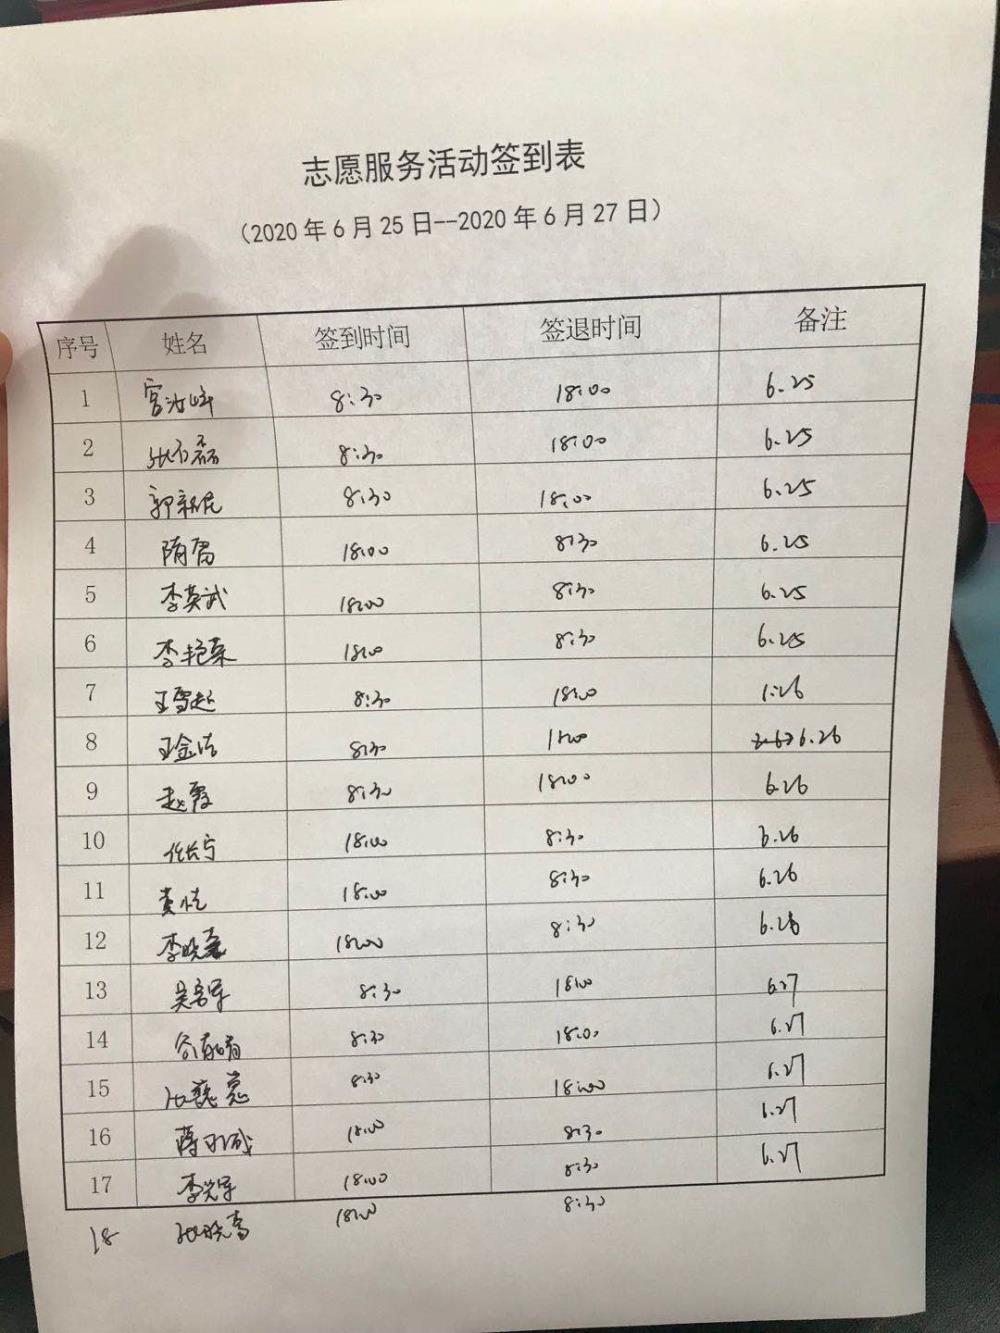 志愿服务活动签到表
（2020年6月25日--2020年6月27日）
序号 姓名 签到时间 签退时间 备注
1 宫 峰 8:30 18:00 6.25
2 张 磊 8:30 18:00 6.25
3 郭新民 8:30 18:00 6.25
4 隋 18:00 8:30 6.25
5 李英武 18:00 8:30 6.25
6 李艳菊 18:00 8:30 6.25
7 王雪 8:30 18:00 1.26
8 王金 8:30 18:00 6.26
9 赵霞 8:30 18:00 6.26
10 任长宁 18:00 8:30 6.26
11 黄 18:00 8:30 6.26
12 李晓 18:00 8:30 6.26
13 吴 军 8:30 18:00 6.27
14 8:30 18:00 6.27
15 8:30 18:00 6.27
16 蒋 成 18:00 8:30 6.27
17 李 军 18:00 8:30 6.27
18 张晓 18:00 8:30